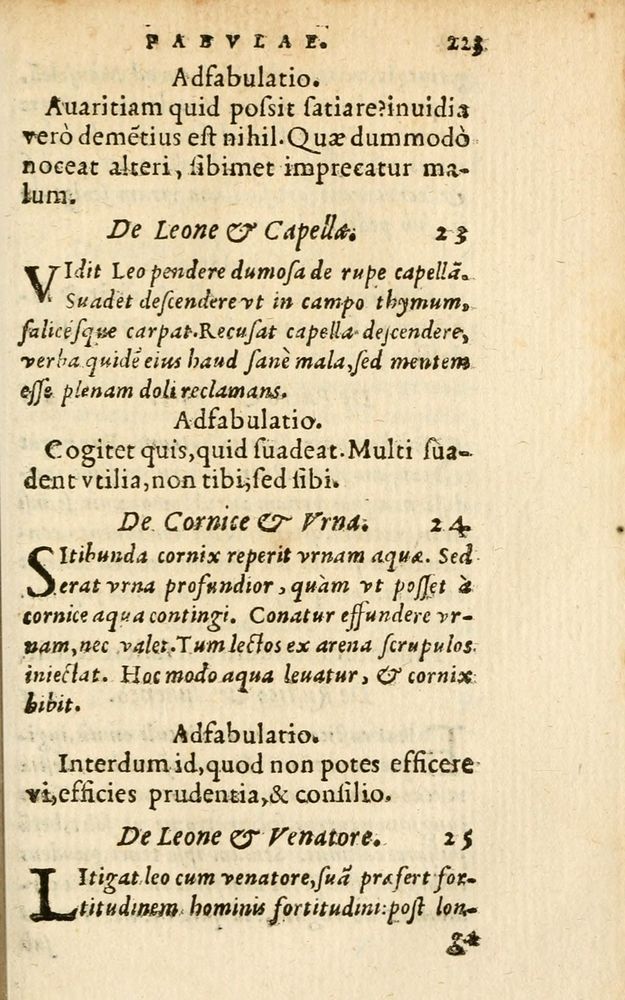 FABVLAE. 223
Adfabulatio.
Auaritiam quid poſsit ſatiare?inuidia
verò demẽtius eſt nihil.Quæ dummodò
noceat alteri, ſibimet imprecatur ma-
lum.
De Leone & Capella. 23
VIdit Leo pendere dumoſa de rupe capellã.
Suadet deſcendere vt in campo thymum,
ſaliceſque carpat.Recuſat capella deſcendere,
verba quidẽ eius haud ſanè mala,ſed mentem
eſſe plenam doli reclamans.
Adfabulatio.
Cogitet quis,quid ſuadeat.Multi ſua-
dent vtilia,non tibi,ſed ſibi.
De Cornice & Vrna. 24
SItibunda cornix reperit vrnam aquæ. Sed
erat vrna profundior, quàm vt poſſet à
cornice aqua contingi. Conatur effundere vr-
nam,nec valet.Tum lectos ex arena ſcrupulos
iniectat. Hoc modo aqua leuatur, & cornix
bibit.
Adfabulatio.
Interdum id,quod non potes efficere
vi,efficies prudentia,& conſilio.
De Leone & Venatore. 25
LItigat leo cum venatore,ſuã præfert for-
titudinem hominis fortitudini:poſt lon-
ga